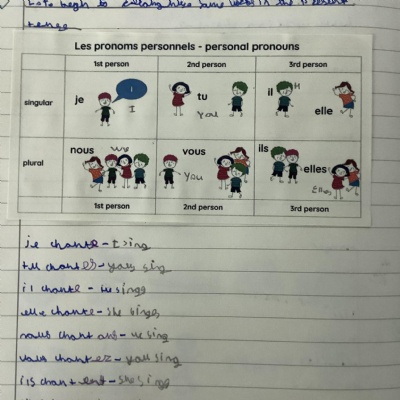 Let's begin to some in the present
tense
Les pronoms personnels - personal pronouns
1st person 2nd person 3rd person
singular je I I tu you il H elle
plural nous we vous you ils elles Elles
1st person 2nd person 3rd person
je chante - I sing
tu chantes - you sing
il chante - he sings
elle chante - she sings
nous chantons - we sing
vous chantez - you sing
ils chantent - she sing